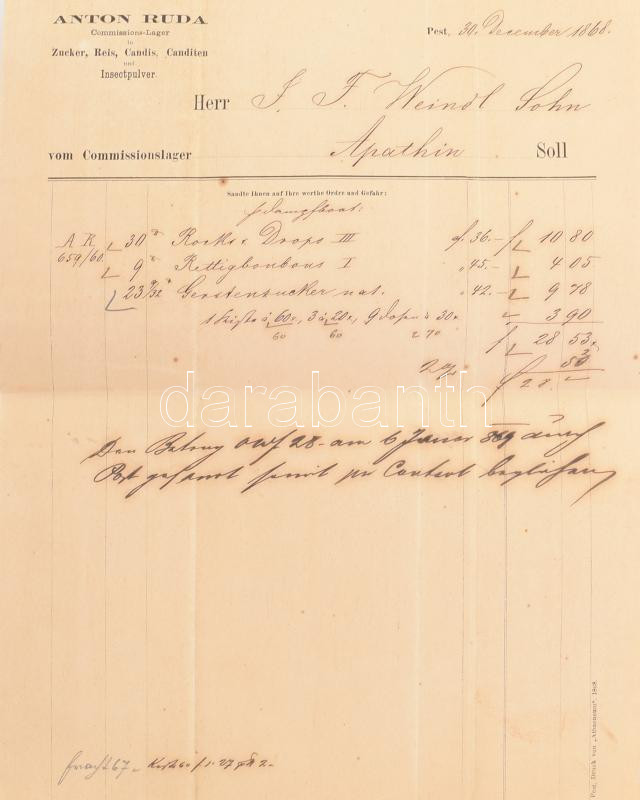 ANTON RUDA
Commissions-Lager
in
Zucker, Reis, Candis, Canditen
und
Insectpulver.
Pest, 30. December 1868.
Herr J. F. Weindl Sohn
Apathin
vom Commissionslager Soll
Sandte Ihnen auf Ihre werthe Ordre und Gefahr:
p Dampfboot:
A R 30 Rocks & Drops III f. 36.- f 10 80
659/60. 9 Rettigbonbons I " 45.- 4 05
23 9/32 Gerstenzucker nat. " 42.- 9 78
1 Kiste à 60x, 3 à 20x, 9 Dosen à 30x 3 90
60 60 2 70
f 28 53x
2 % 53
f 28
darabanth
Den Betrag ö W f 28 - am 6 Januar 869 durch
Post gesandt somit pr Contant beglichen
fracht 67
Post, Druck von „Athenaeum“ 1868.